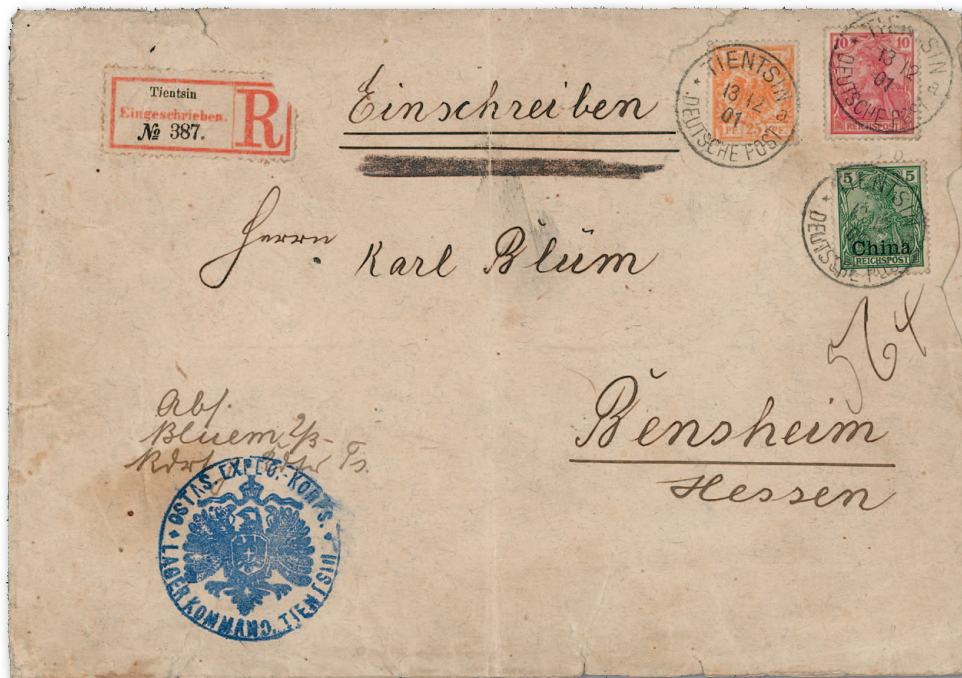 Tientsin
Eingeschrieben.
№ 387.
R
Einschreiben
TIENTSIN a
13 12
01
DEUTSCHE POST
25 PF
10 10
REICHSPOST
TIENTSIN a
13 12
01
DEUTSCHE POST
5 5
China
REICHSPOST
TIENTSIN
DEUTSCHE POST
Herrn Karl Blüm
564
Bensheim
Hessen
Abs.
Bluem
OSTAS. EXPED.-KORPS.
LAGERKOMMAND. TJENTSIN